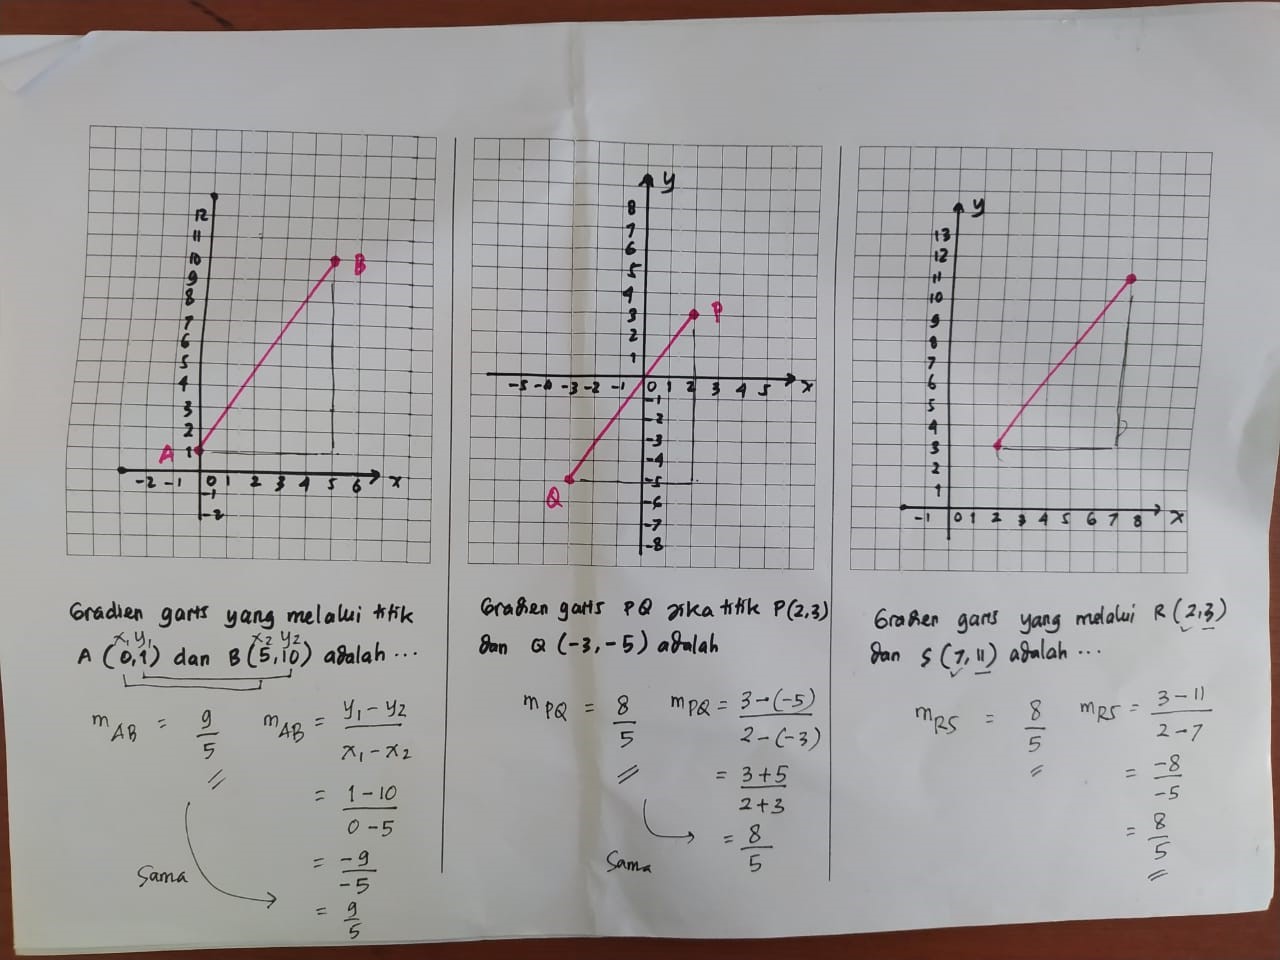 12
11
10
9
8
7
6
5
4
3
2
1
A
B
-2 -1 0 1 2 3 4 5 6 x
-1
-2
Gradien garis yang melalui titik
x₁ y₁ x₂ y₂
A (0,1) dan B (5,10) adalah ...
m_AB = 9/5
m_AB = y₁ - y₂ / x₁ - x₂
= 1 - 10 / 0 - 5
= -9 / -5
= 9/5
Sama
y
8
7
6
5
4
3
2
1
P
-5 -4 -3 -2 -1 0 1 2 3 4 5 x
-1
-2
-3
-4
-5
-6
-7
-8
Q
Gradien garis PQ jika titik P(2,3)
dan Q (-3,-5) adalah
m_PQ = 8/5
m_PQ = 3 - (-5) / 2 - (-3)
= 3 + 5 / 2 + 3
= 8/5
Sama
y
13
12
11
10
9
8
7
6
5
4
3
2
1
-1 0 1 2 3 4 5 6 7 8 x
Gradien garis yang melalui R (2,3)
dan S (7,11) adalah ...
m_RS = 8/5
m_RS = 3 - 11 / 2 - 7
= -8 / -5
= 8/5